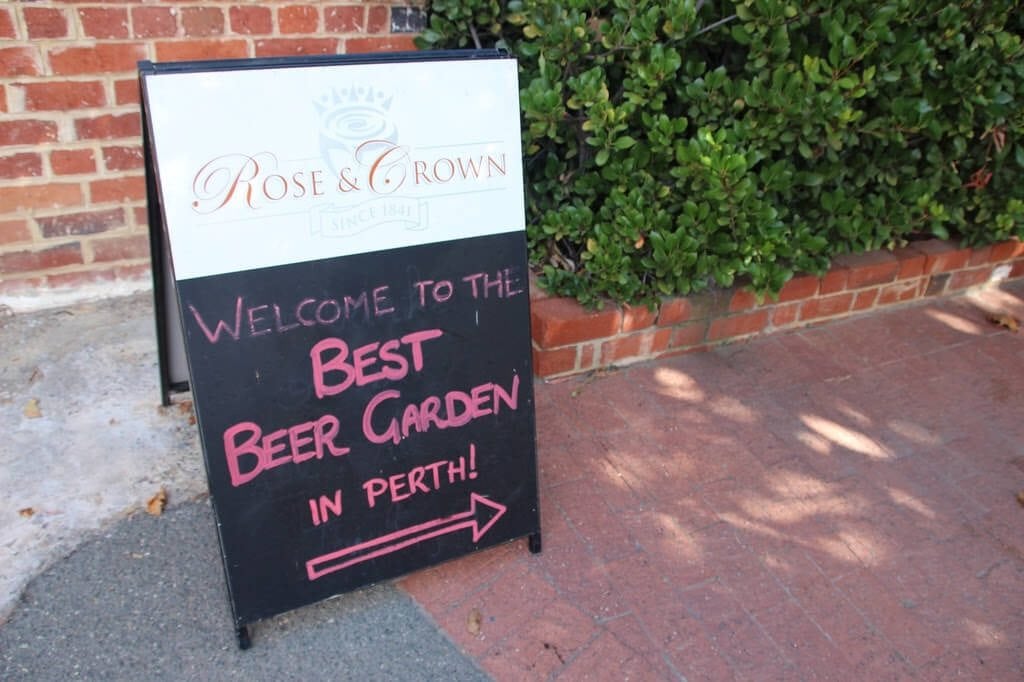 Rose & Crown
SINCE 1841
WELCOME TO THE
BEST
BEER GARDEN
IN PERTH!